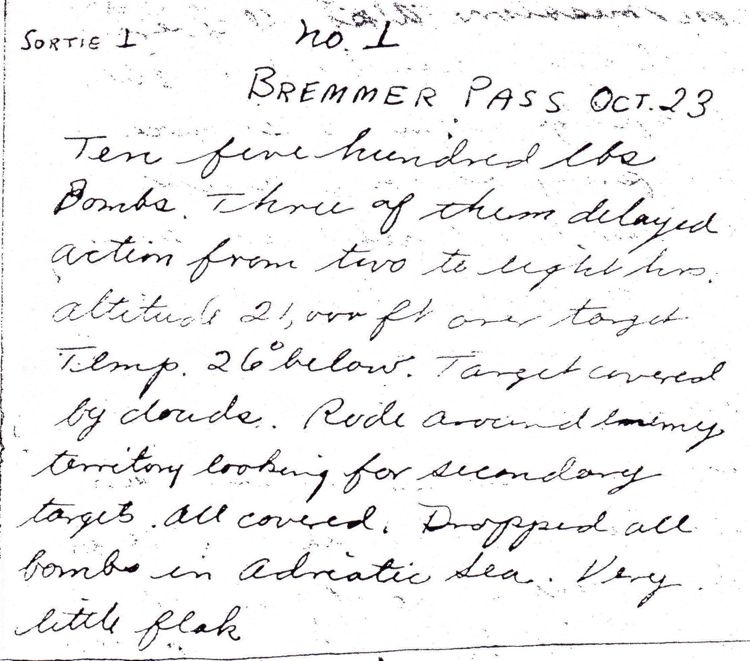 SORTIE 1 no. 1
BREMMER PASS OCT. 23
Ten five hundred lbs
Bombs. Three of them delayed
action from two to eight hrs.
altitude 21,000 ft over target
Temp. 26° below. Target covered
by clouds. Rode around enemy
territory looking for secondary
target. All covered. Dropped all
bombs in Adriatic Sea. Very
little flak